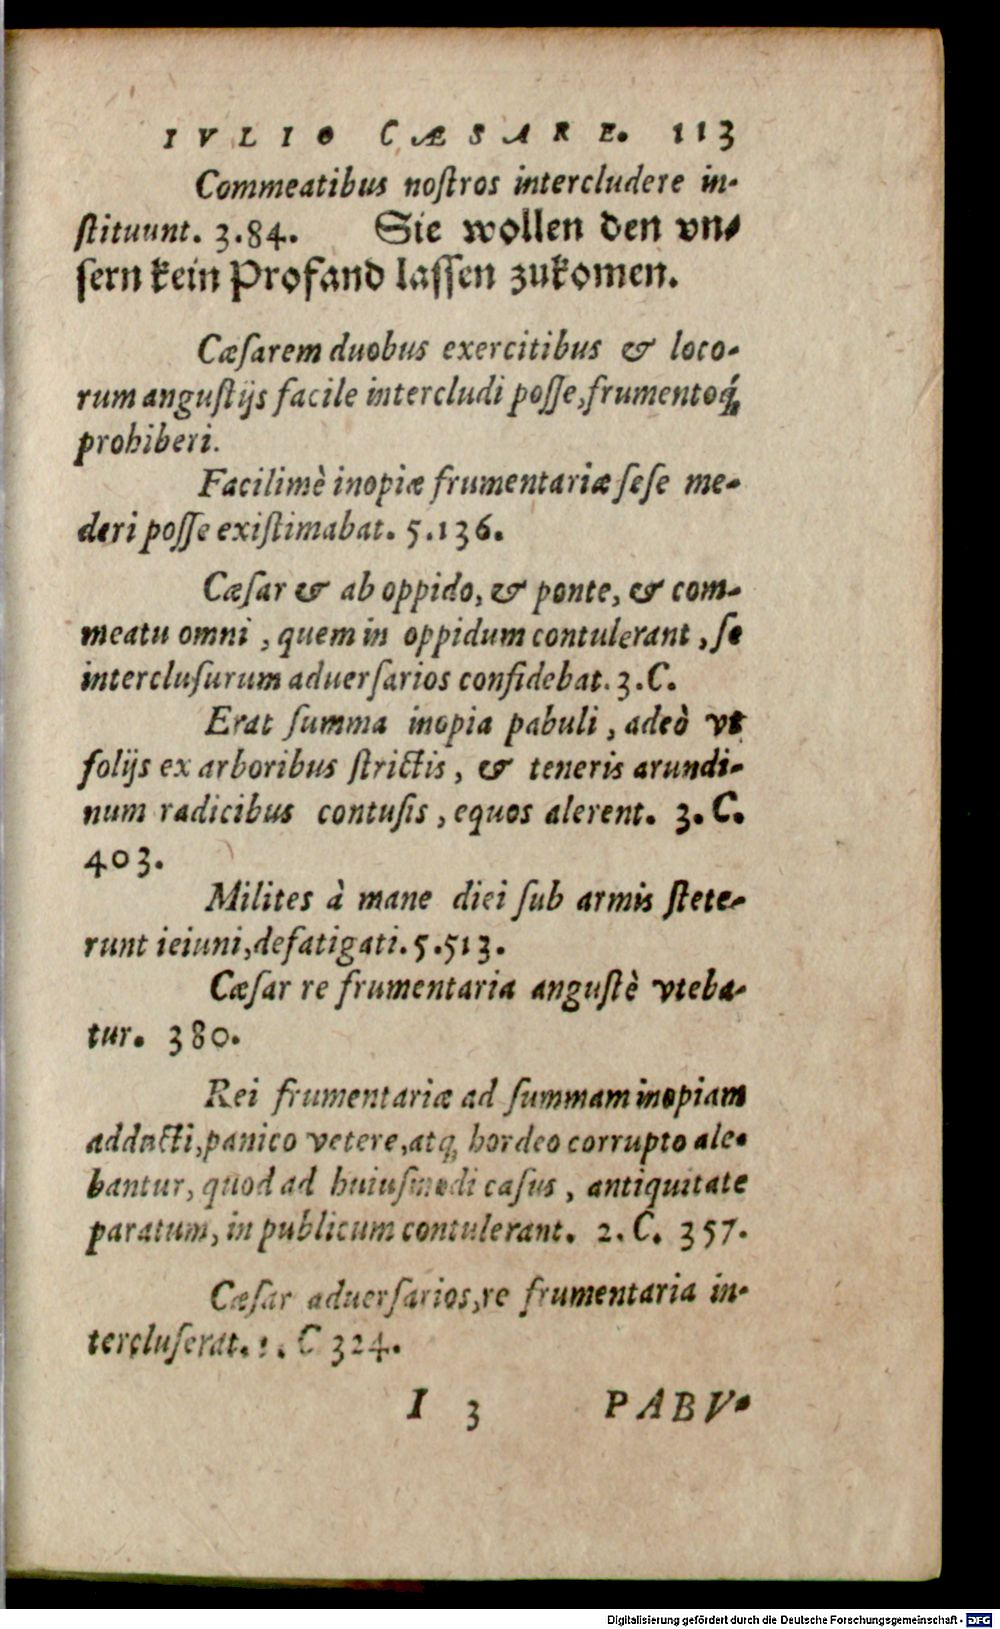 IVLIO CÆSARE. 113
Commeatibus noſtros intercludere in-
ſtituunt. 3.84. Sie wollen den vn-
ſern kein Profand laſſen zukomen.
Cæſarem duobus exercitibus & loco-
rum anguſtijs facile intercludi poſſe, frumentoq́;
prohiberi.
Facilimè inopiæ frumentariæ ſeſe me-
deri poſſe exiſtimabat. 5.136.
Cæſar & ab oppido, & ponte, & com-
meatu omni, quem in oppidum contulerant, ſe
intercluſurum aduerſarios confidebat. 3.C.
Erat ſumma inopia pabuli, adeò vt
folijs ex arboribus ſtrictis, & teneris arundi-
num radicibus contuſis, equos alerent. 3. C.
403.
Milites à mane diei ſub armis ſtete-
runt ieiuni, defatigati. 5.513.
Cæſar re frumentaria anguſtè vteba-
tur. 380.
Rei frumentariæ ad ſummam inopiam
adducti, panico vetere, atq; hordeo corrupto ale-
bantur, quod ad huiuſmodi caſus, antiquitate
paratum, in publicum contulerant. 2. C. 357.
Cæſar aduerſarios, re frumentaria in-
tercluſerat. C 324.
I 3 PABV-
Digitalisierung gefördert durch die Deutsche Forschungsgemeinschaft - DFG